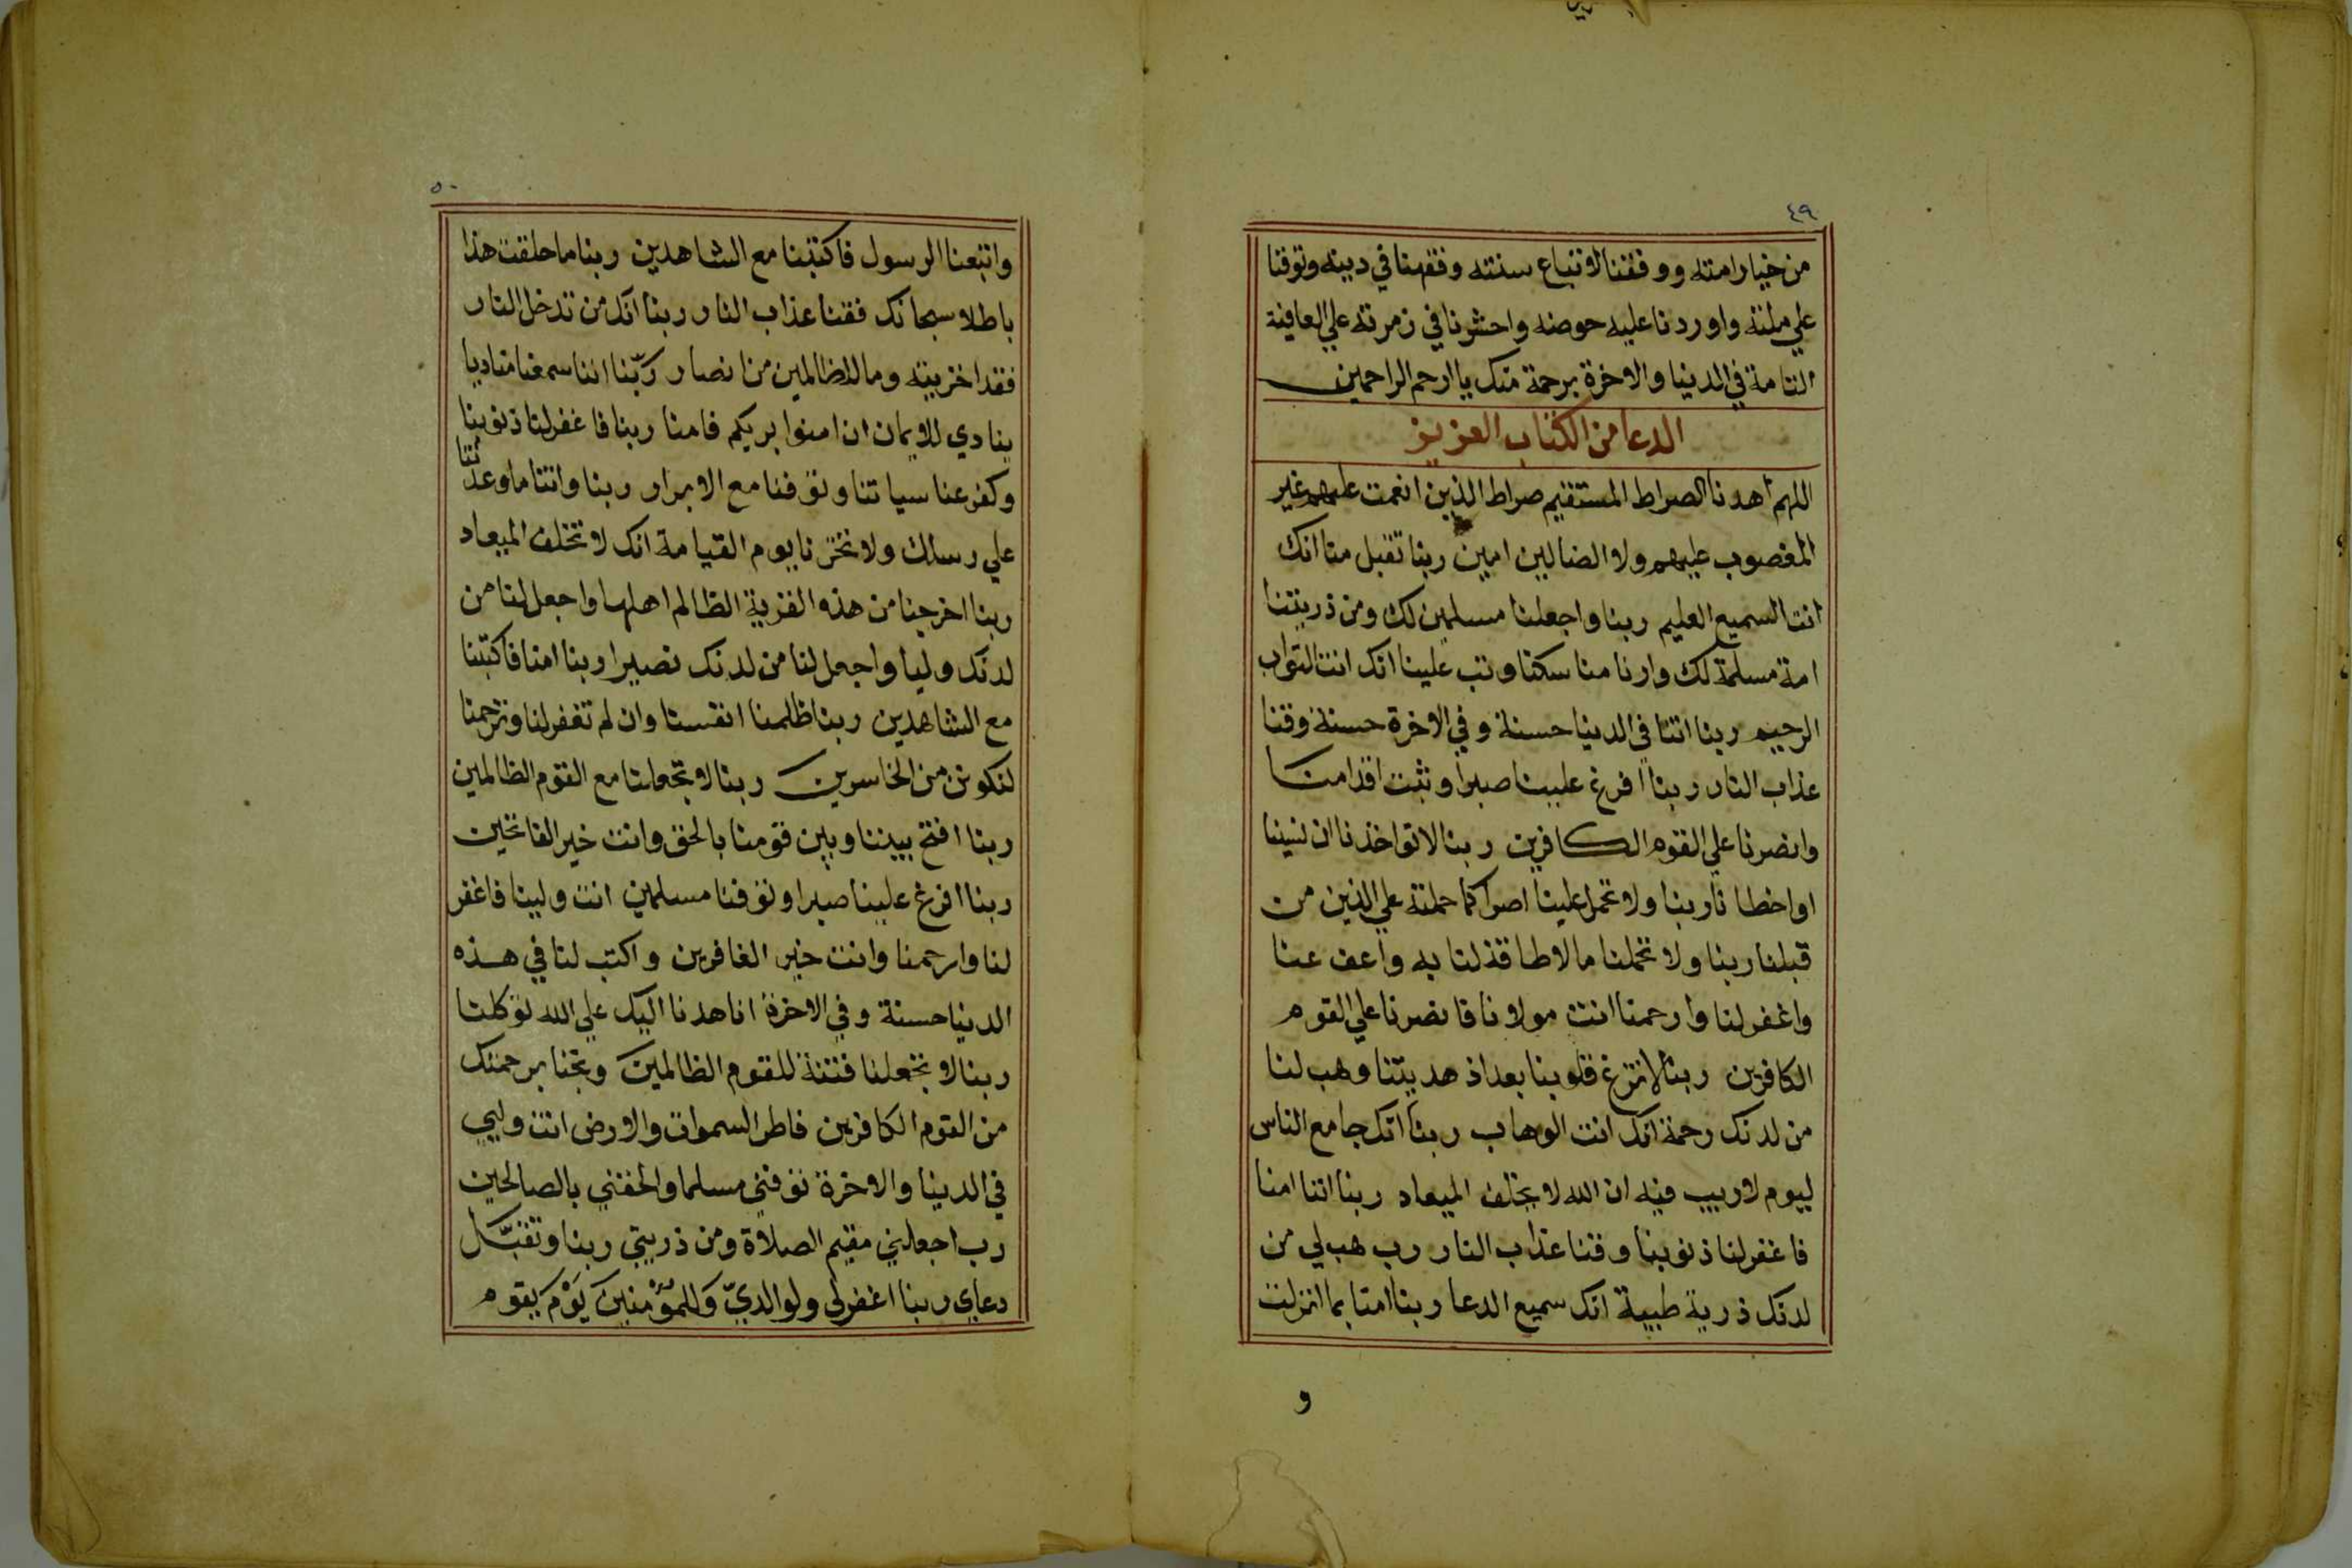 ٤٩
من خيار امته ووفقنا لاتباع سنته وفقهنا في دينه وتوفنا
علي ملته واوردنا عليه حوضه واحشرنا في زمرته علي العافية
التامة في الدنيا والاخرة برحمة منك يا ارحم الراحمين
الدعا من الكتاب العزيز
اللهم اهدنا الصراط المستقيم صراط الذين انعمت عليهم غير
المغضوب عليهم ولا الضالين امين ربنا تقبل منا انك
انت السميع العليم ربنا واجعلنا مسلمين لك ومن ذريتنا
امة مسلمة لك وارنا مناسكنا وتب علينا انك انت التواب
الرحيم ربنا اتنا في الدنيا حسنة وفي الاخرة حسنة وقنا
عذاب النار ربنا افرغ علينا صبرا وثبت اقدامنا
وانصرنا علي القوم الكافرين ربنا لا تواخذنا ان نسينا
او اخطانا ربنا ولا تحمل علينا اصرا كما حملته علي الذين من
قبلنا ربنا ولا تحملنا ما لا طاقة لنا به واعف عنا
واغفر لنا وارحمنا انت مولانا فانصرنا علي القوم
الكافرين ربنا لا تزغ قلوبنا بعد اذ هديتنا وهب لنا
من لدنك رحمة انك انت الوهاب ربنا انك جامع الناس
ليوم لا ريب فيه ان الله لا يخلف الميعاد ربنا اننا امنا
فاغفر لنا ذنوبنا وقنا عذاب النار رب هب لي من
لدنك ذرية طيبة انك سميع الدعا ربنا امنا بما انزلت
و
٥٠
واتبعنا الرسول فاكتبنا مع الشاهدين ربنا ما خلقت هذا
باطلا سبحانك فقنا عذاب النار ربنا انك من تدخل النار
فقد اخزيته وما للظالمين من انصار رَبّنا اننا سمعنا مناديا
ينادي للايمان ان امنوا بربكم فامنا ربنا فاغفر لنا ذنوبنا
وكفر عنا سياتنا وتوفنا مع الابرار ربنا واتنا ما وعدتنا
علي رسلك ولا تخزنا يوم القيامة انك لا تخلف الميعاد
ربنا اخرجنا من هذه القرية الظالم اهلها واجعل لنا من
لدنك وليا واجعل لنا من لدنك نصيرا ربنا امنا فاكتبنا
مع الشاهدين ربنا ظلمنا انفسنا وان لم تغفر لنا وترحمنا
لنكونن من الخاسرين ربنا لا تجعلنا مع القوم الظالمين
ربنا افتح بيننا وبين قومنا بالحق وانت خير الفاتحين
ربنا افرغ علينا صبرا وتوفنا مسلمين انت ولينا فاغفر
لنا وارحمنا وانت خير الغافرين واكتب لنا في هذه
الدنيا حسنة وفي الاخرة انا هدنا اليك علي الله توكلنا
ربنا لا تجعلنا فتنة للقوم الظالمين ونجنا برحمتك
من القوم الكافرين فاطر السموات والارض انت وليي
في الدنيا والاخرة توفني مسلما والحقني بالصالحين
رب اجعلني مقيم الصلاة ومن ذريتي ربنا وتقبّل
دعاي ربنا اغفر لي ولوالديّ وَللمؤْمنينَ يَوْم يقوم